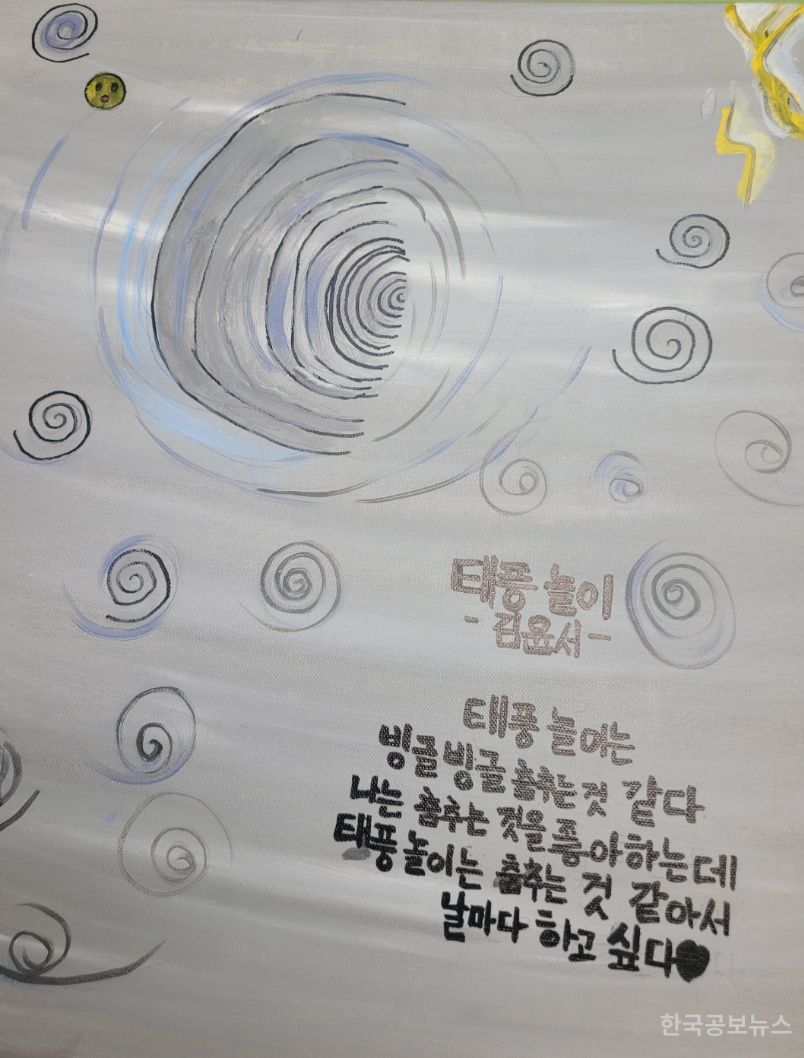 태풍 놀이
- 김윤서 -
태풍 놀이는
빙글빙글 춤추는 것 같다
나는 춤추는 것을 좋아하는데
태풍놀이는 춤추는 것 같아서
날마다 하고 싶다♥
한국공보뉴스